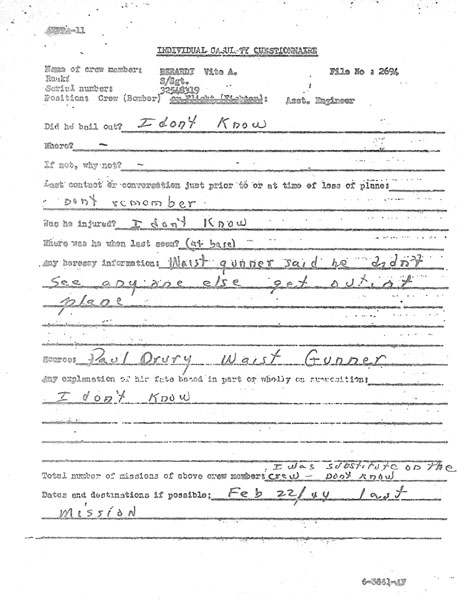 INDIVIDUAL CASULTY QUESTIONNAIRE
Name of crew member: BERARDI Vito A. File No : 2694
Rank: S/Sgt.
Serial number: 32548319
Position: Crew (Bomber) on Flight (Fighter): Asst. Engineer
Did he bail out? I don't Know
Where? -
If not, why not? -
Last contact or conversation just prior to or at time of loss of plane:
Don't remember
Was he injured? I don't Know
Where was he when last seen? (at base)
Any heresay information: Waist gunner said he didn't
see any one else get out of
plane
Source: Paul Drury Waist Gunner
Any explanation of his fate based in part or wholly on supposition:
I don't Know
I was substitute on the
Total number of missions of above crew member: crew - Don't Know
Dates and destinations if possible: Feb 22/44 last
Mission
6-3861-AF